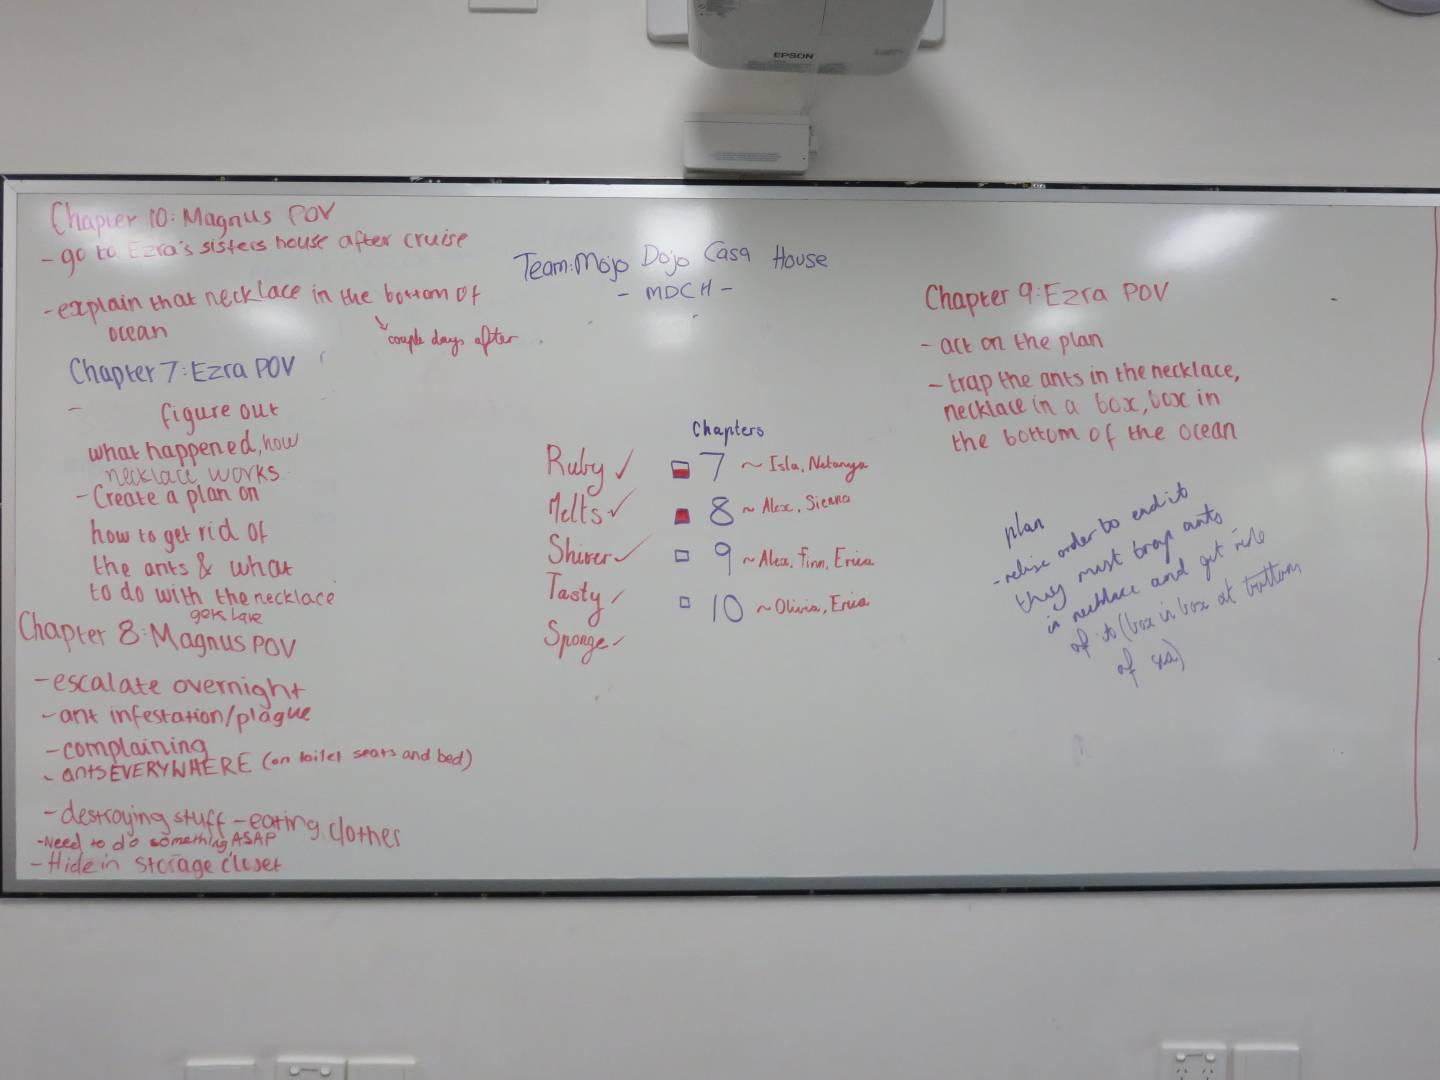 EPSON
Chapter 10: Magnus POV
- go to Ezra's sisters house after cruise
- explain that necklace in the bottom of
ocean
couple days after
Chapter 7: Ezra POV
- figure out
what happened, how
necklace works
- Create a plan on
how to get rid of
the ants & what
to do with the necklace
gets late
Chapter 8: Magnus POV
- escalate overnight
- ant infestation/plague
- complaining
- ants EVERYWHERE (on toilet seats and bed)
- destroying stuff - eating clothes
- Need to do something ASAP
- Hide in storage closet
Team: Mojo Dojo Casa House
- MDCH -
Chapters
Ruby ✓
Melts ✓
Shiver ✓
Tasty ✓
Sponge ✓
7 ~ Isla, Netanya
8 ~ Alex, Sienna
9 ~ Alex, Finn, Erica
10 ~ Olivia, Erica
Chapter 9: Ezra POV
- act on the plan
- trap the ants in the necklace,
necklace in a box, box in
the bottom of the ocean
plan
- order to end it
they must trap ants
in necklace and get ride
of it (box in box at bottom
of sea)